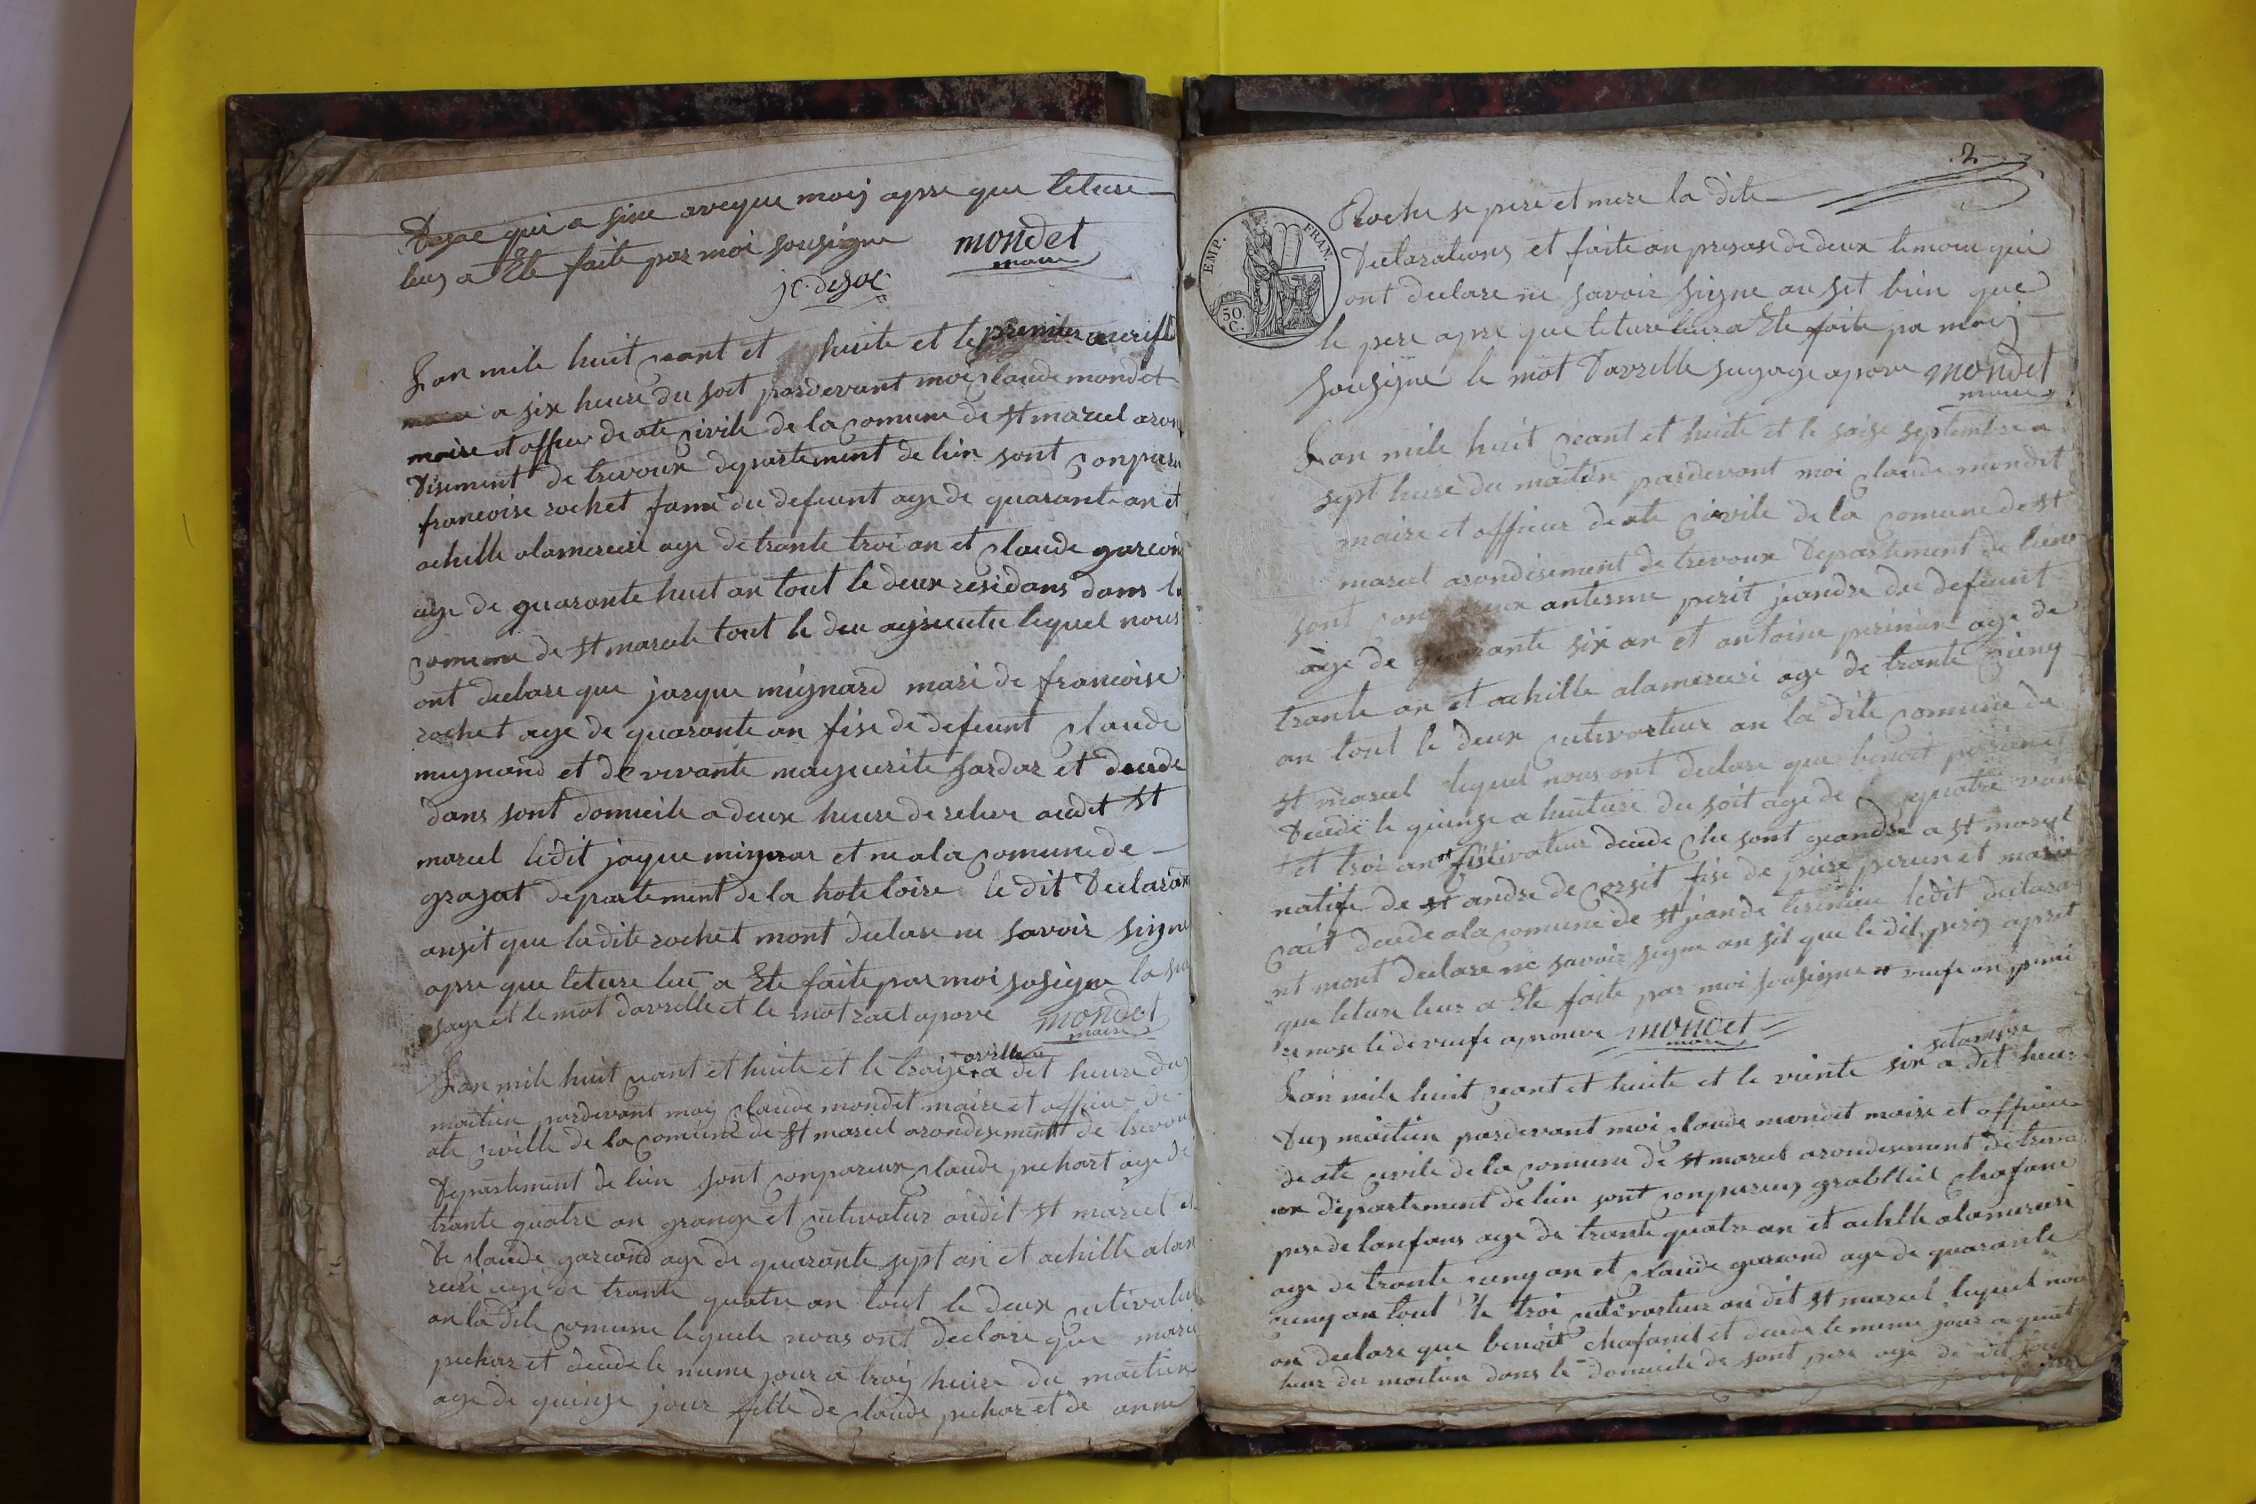 Desoc qui a sine aveque moij apre que leture
leus a Ete faite par moi sousigne mondet
maire
jc. desoc
Lan mile huit cant et huite et le premiler avrille
a six heure du soit pardevant moi claude mondet
maire et officer de ate civile de la comune de st marcel aron
disement de trevoux departement de lein sont conparu
francoise rochet fame du defeunt age de quarante an et
achille alamerceri age de trante troi an et claude garcond
age de quarante huit an tout le deux residans dans la
comune de st marcele tout le deu agricutu lequel nous
ont declare que jacque mignard mari de francoise
rochet age de quarante an fise de defeunt claude
mignard et de vivante marguerite sardar et decede
dans sont domicile a deux heure de releve audit st
marcel ledit jaque mignar et ne a la comune de
grasat departement de la hote loire le dit Declaran
ausit que ladite rochet mont declare ne savoir signe
apre que leture leu a Ete faite par moi sosigne la su
sage et le mot davrelle et le mot raet aprove mondet
maire
Lan mile huit cant et huite et le traize avrille a dit heure du
maitien pardevant moij claude mondet maire et officer de
ate civille de la comune de st marcel arondisement de trevou
Departement de lein sont conpareux claude pichart age de
trante quatre an grange et cutivatur audit st marcel et
de claude garcond age de quarante sept an et achille alam
reri age de trante quatre an tout le deux cutivatur
an la dite comune lequele nous ont declare que marie
pichar et decede le meme jour a troij heure du maitien
age de quinze jour fille de claude pichar et de anne
2
EMP. FRAN.
50 C.
Roche se pere et mere la dite
Declarations et faite an presase de deux temoin qui
ont declare ne savoir signe au sit bien que
le pere apre que leture leur a Ete faite pa moij
sousigne le mot Davrelle surgage aprove mondet
maire
Lan mile huit cant et huite et le saise septembre a
sept heure du maitien pardevant moi claude mondet
maire et officeur de ate civile de la comune de st
marcel arondisement de trevoux Departement de leien
sont conpareux antesme perit jeandre du defeunt
age de quarante six an et antoine perinin age de
trante an et achille alamerceri age de trante cienq
an tout le deux cutivateur an la dite comune de
st marcel lequel nous ont declare que benoit perinet
Decede le quinze a huiteure du soit age de quatre vaint
et troi an cutivateur decede ches sont geandre a st marcel
natife de st andre de corsit fise de piere perinet et marie
cait decede a la comune de st jean de tiremieu ledit declara
nt mont declare ne savoir signe au sit que le dit perij apret
que leture leur a Ete faite par moi sousigne veufe an premi
re nose le de veufe aprouve mondet
maire
Lan mile huit cant et huite et le viente six setambre a dit heur
Du maitien pardevant moi claude mondet maire et officeu
de ate civile de la comune de st marcel arondisement de trevo
ux departement de lein sont conpareux grabllieil chafane
pere de lanfans age de trante quatre an et achille alamerceri
age de trante cienq an et claude garcond age de quarante
cienq an tout le troi cutivateur au dit st marcel lequel nou
on declare que benoit chafanet et decede le meme jour a quat
heur du maitien dans le domicile de sont pere age de dit jour